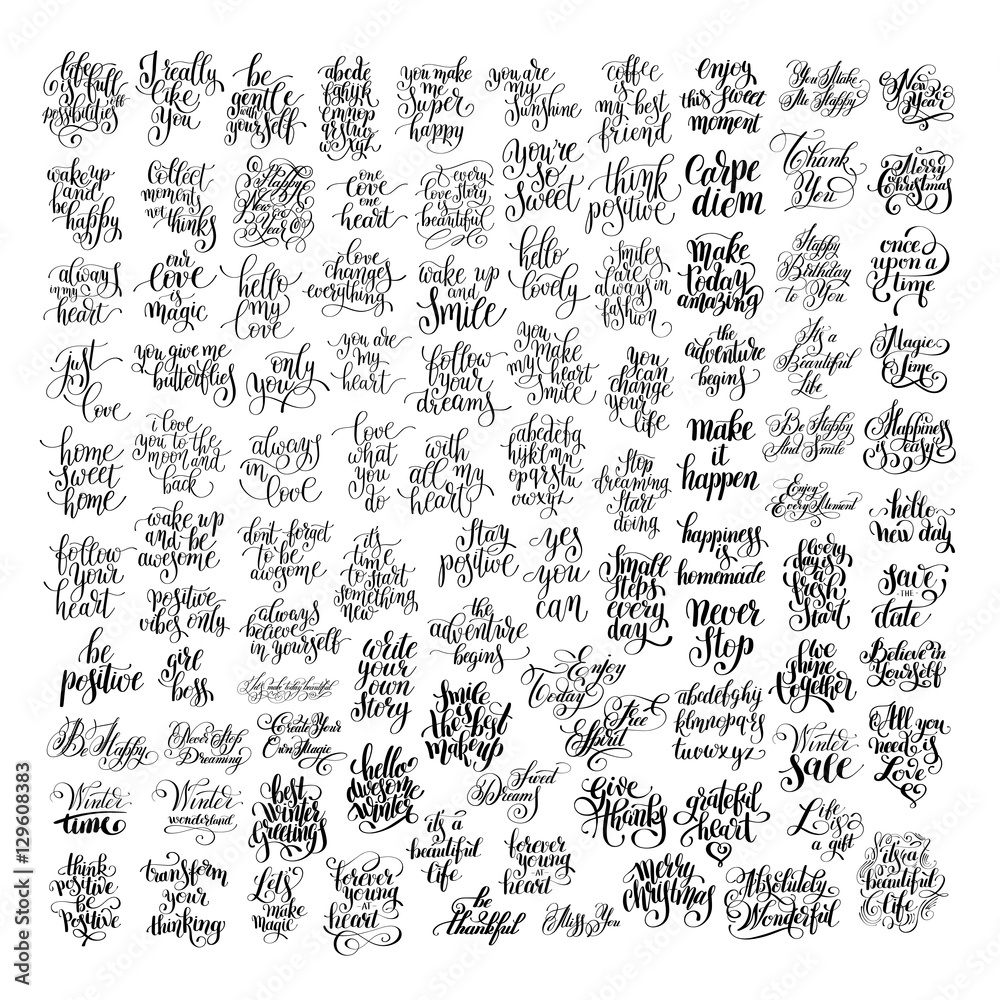 life
is full
of
possibilities
I really
like
you
be
gentle
with
yourself
abcde
fghijk
lmnop
qrstu
vwxyz
you make
me
super
happy
you are
my
sunshine
coffee
is
my best
friend
enjoy
this sweet
moment
You Make
Me Happy
New
Year
wake up
and
be
happy
collect
moments
not
thinks
Happy
New
Year
one
love
one
heart
every
love story
is
beautiful
you're
so
sweet
think
positive
carpe
diem
Thank
You
Merry
Christmas
always
in my
heart
our
love
is
magic
hello
my
love
love
changes
everything
wake up
and
smile
hello
lovely
smiles
are
always in
fashion
make
today
amazing
Happy
Birthday
to You
once
upon a
time
just
love
you give me
butterflies
only
you
you are
my
heart
follow
your
dreams
you
make
my heart
smile
you
can
change
your
life
the
adventure
begins
It's a
Beautiful
Life
Magic
Time
home
sweet
home
i love
you to the
moon and
back
always
in
love
love
what
you
do
with
all my
heart
abcdefg
hijklmn
opqrstu
vwxyz
stop
dreaming
start
doing
make
it
happen
Be Happy
And Smile
Happiness
is easy
follow
your
heart
wake up
and be
awesome
dont forget
to
be
awesome
it's
time
to start
something
new
stay
positive
yes
you
can
small
steps
every
day
happiness
is
homemade
Enjoy
Every Moment
hello
new day
positive
vibes only
always
believe
in yourself
the
adventure
begins
never
stop
every
day is
a
fresh
start
save
THE
date
be
positive
girl
boss
let's make today beautiful
write
your
own
story
smile
is
the best
makeup
Enjoy
Today
abcdefghij
klmnopqrs
tuvwxyz
we
shine
together
Believe in
Yourself
Be Happy
Never Stop
Dreaming
Create Your
Own Magic
hello
awesome
winter
Free
Spirit
Winter
sale
All you
need is
Love
Winter
time
Winter
wonderland
best
winter
greetings
Sweet
Dreams
give
thanks
grateful
heart
Life
is
a gift
think
positive
be
positive
transform
your
thinking
Let's
make
magic
forever
young
AT
heart
it's a
beautiful
life
forever
young
AT
heart
be
thankful
Miss You
merry
christmas
Absolutely
Wonderful
it's a
beautiful
life
Adobe Stock | #129608383
Adobe Stock